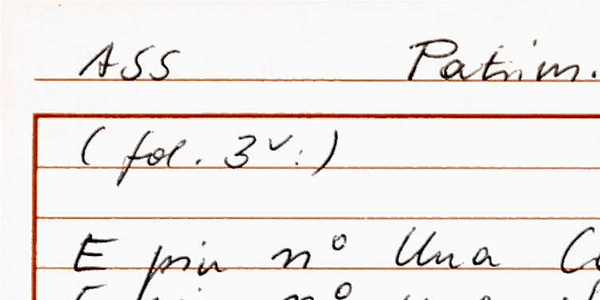 ASS Patrim.
(fol. 3v:)
E piu n° Una